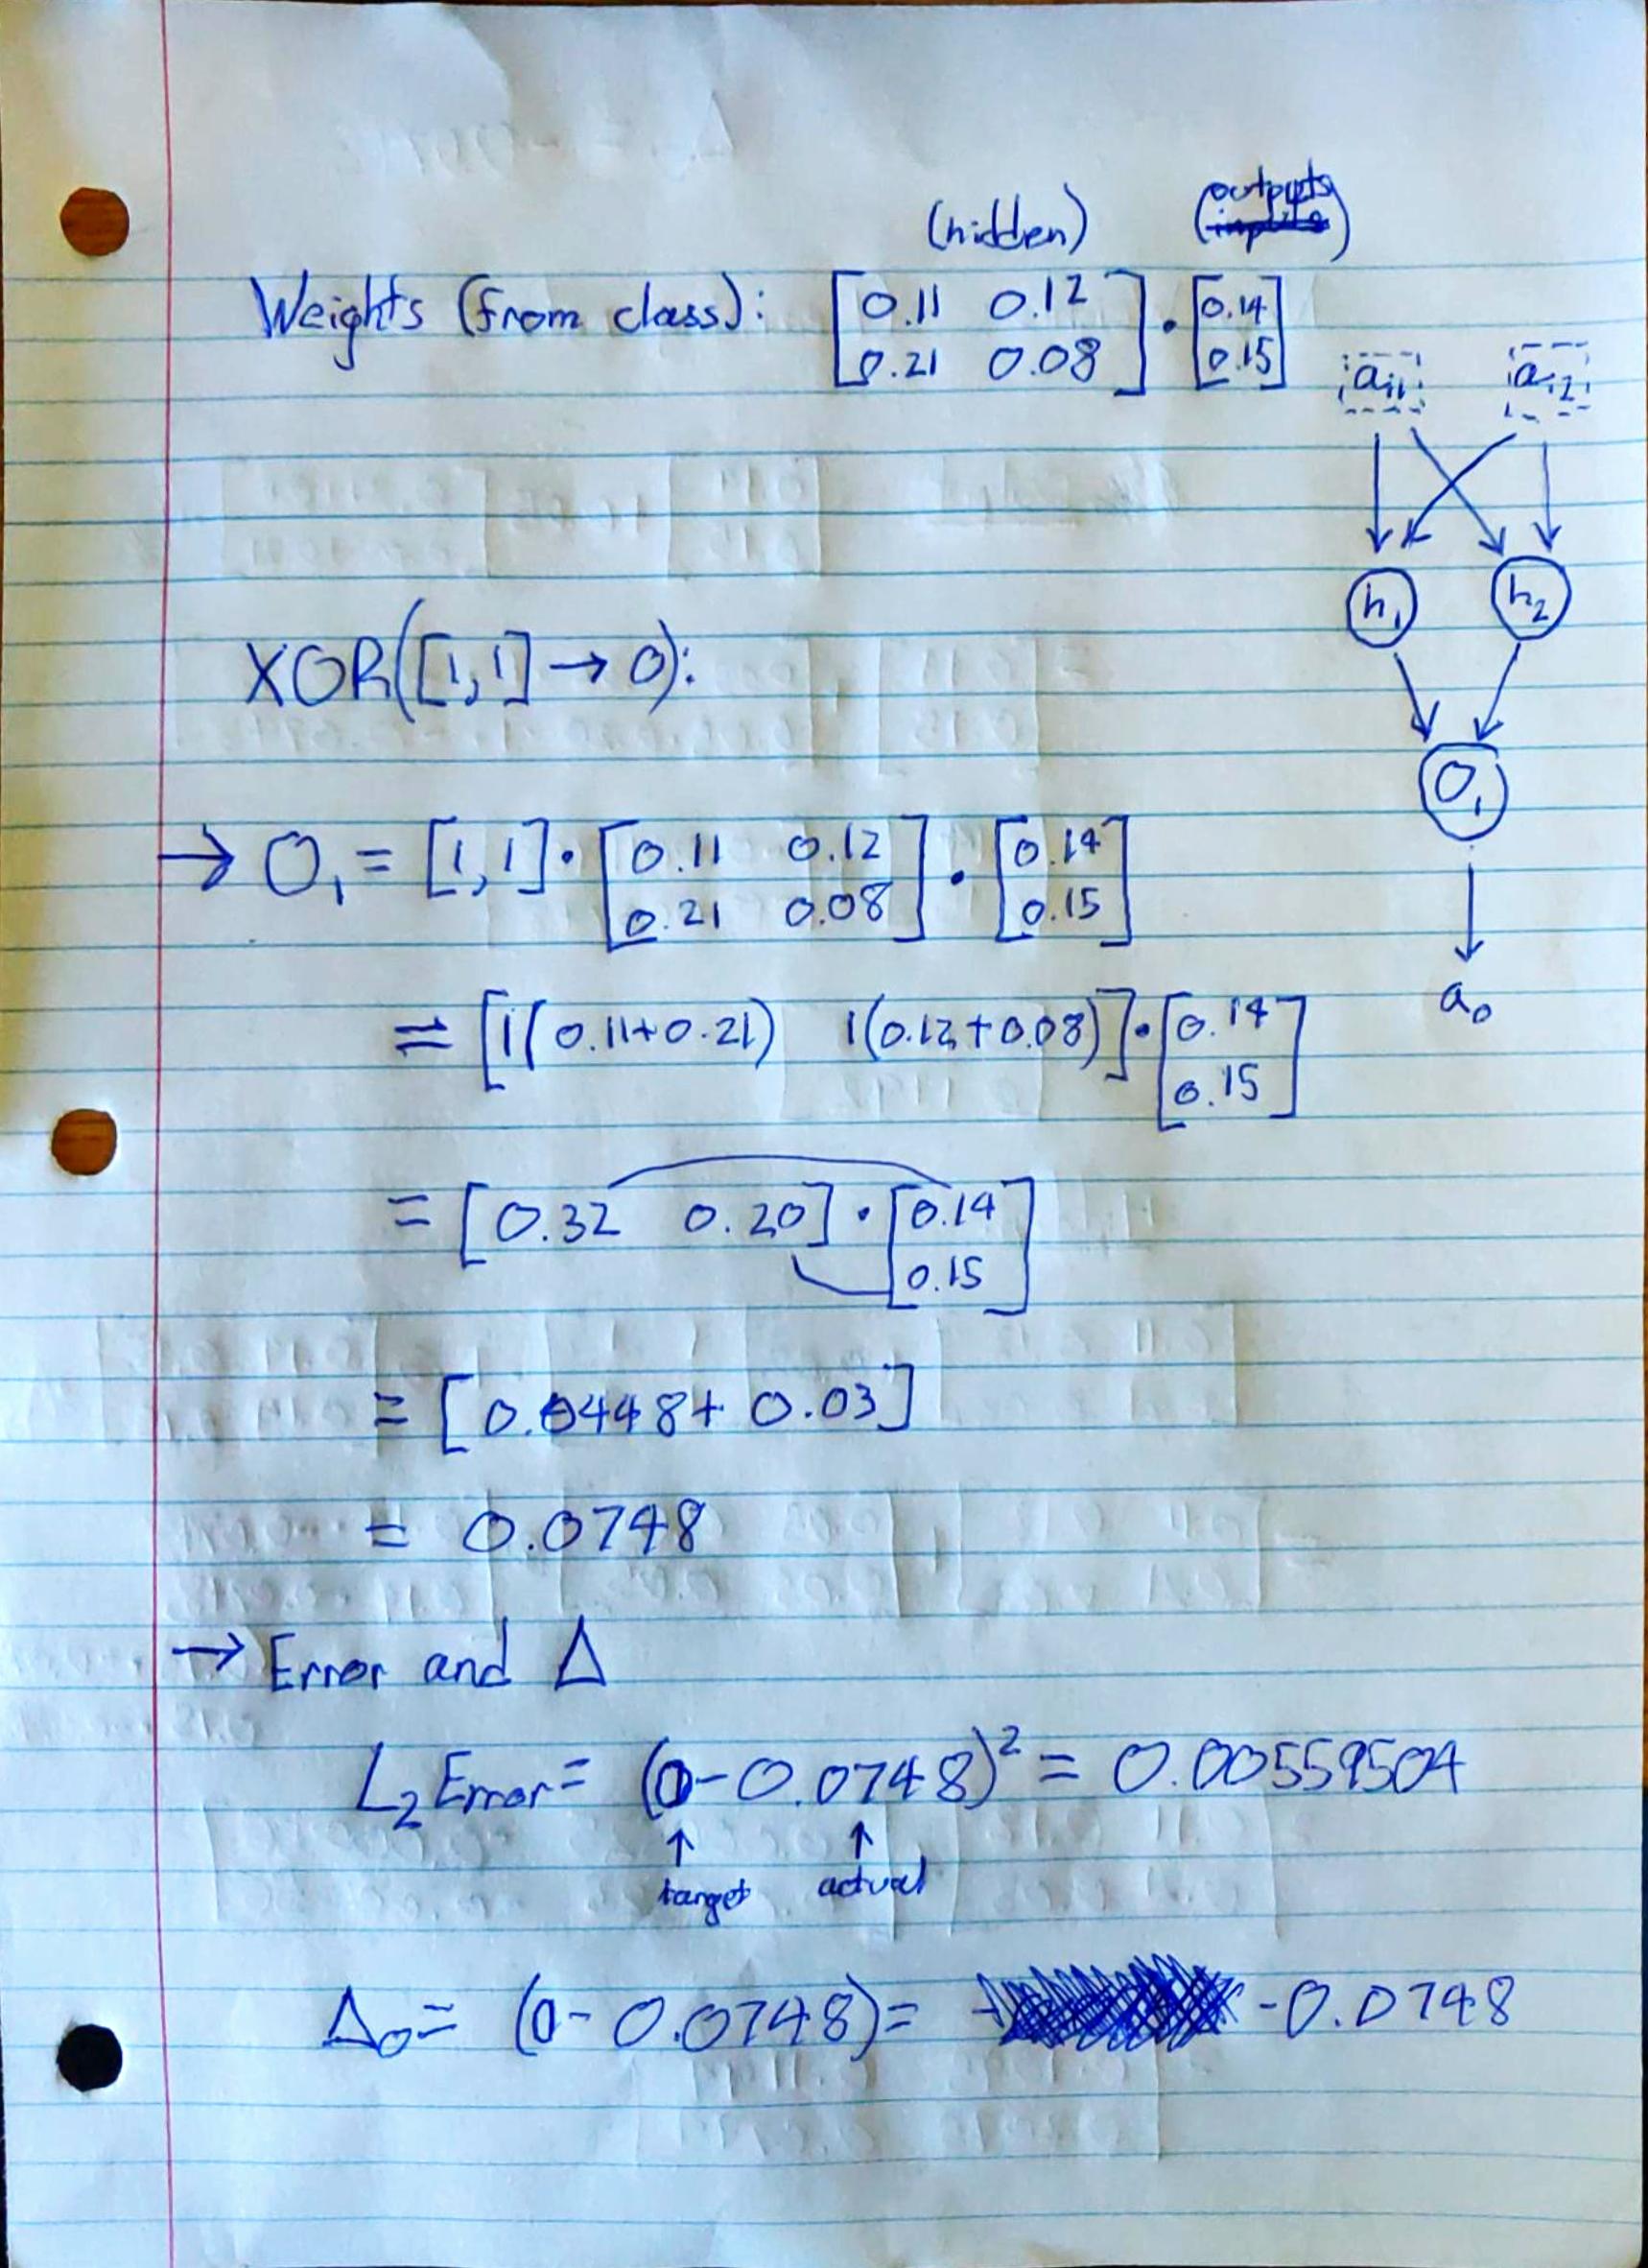 (hidden) (outputs)
Weights (from class): [0.11 0.12] · [0.14]
[0.21 0.08] [0.15]
a_i1 a_i2
h₁ h₂
XOR([1,1] → 0):
O₁
→ O₁ = [1,1] · [0.11 0.12] · [0.14]
[0.21 0.08] [0.15]
a₀
= [1(0.11+0.21) 1(0.12+0.08)] · [0.14]
[0.15]
= [0.32 0.20] · [0.14]
[0.15]
= [0.0448 + 0.03]
= 0.0748
→ Error and Δ
L₂ Error = (0-0.0748)² = 0.00559504
↑ ↑
target actual
Δ₀ = (0-0.0748) = -0.0748